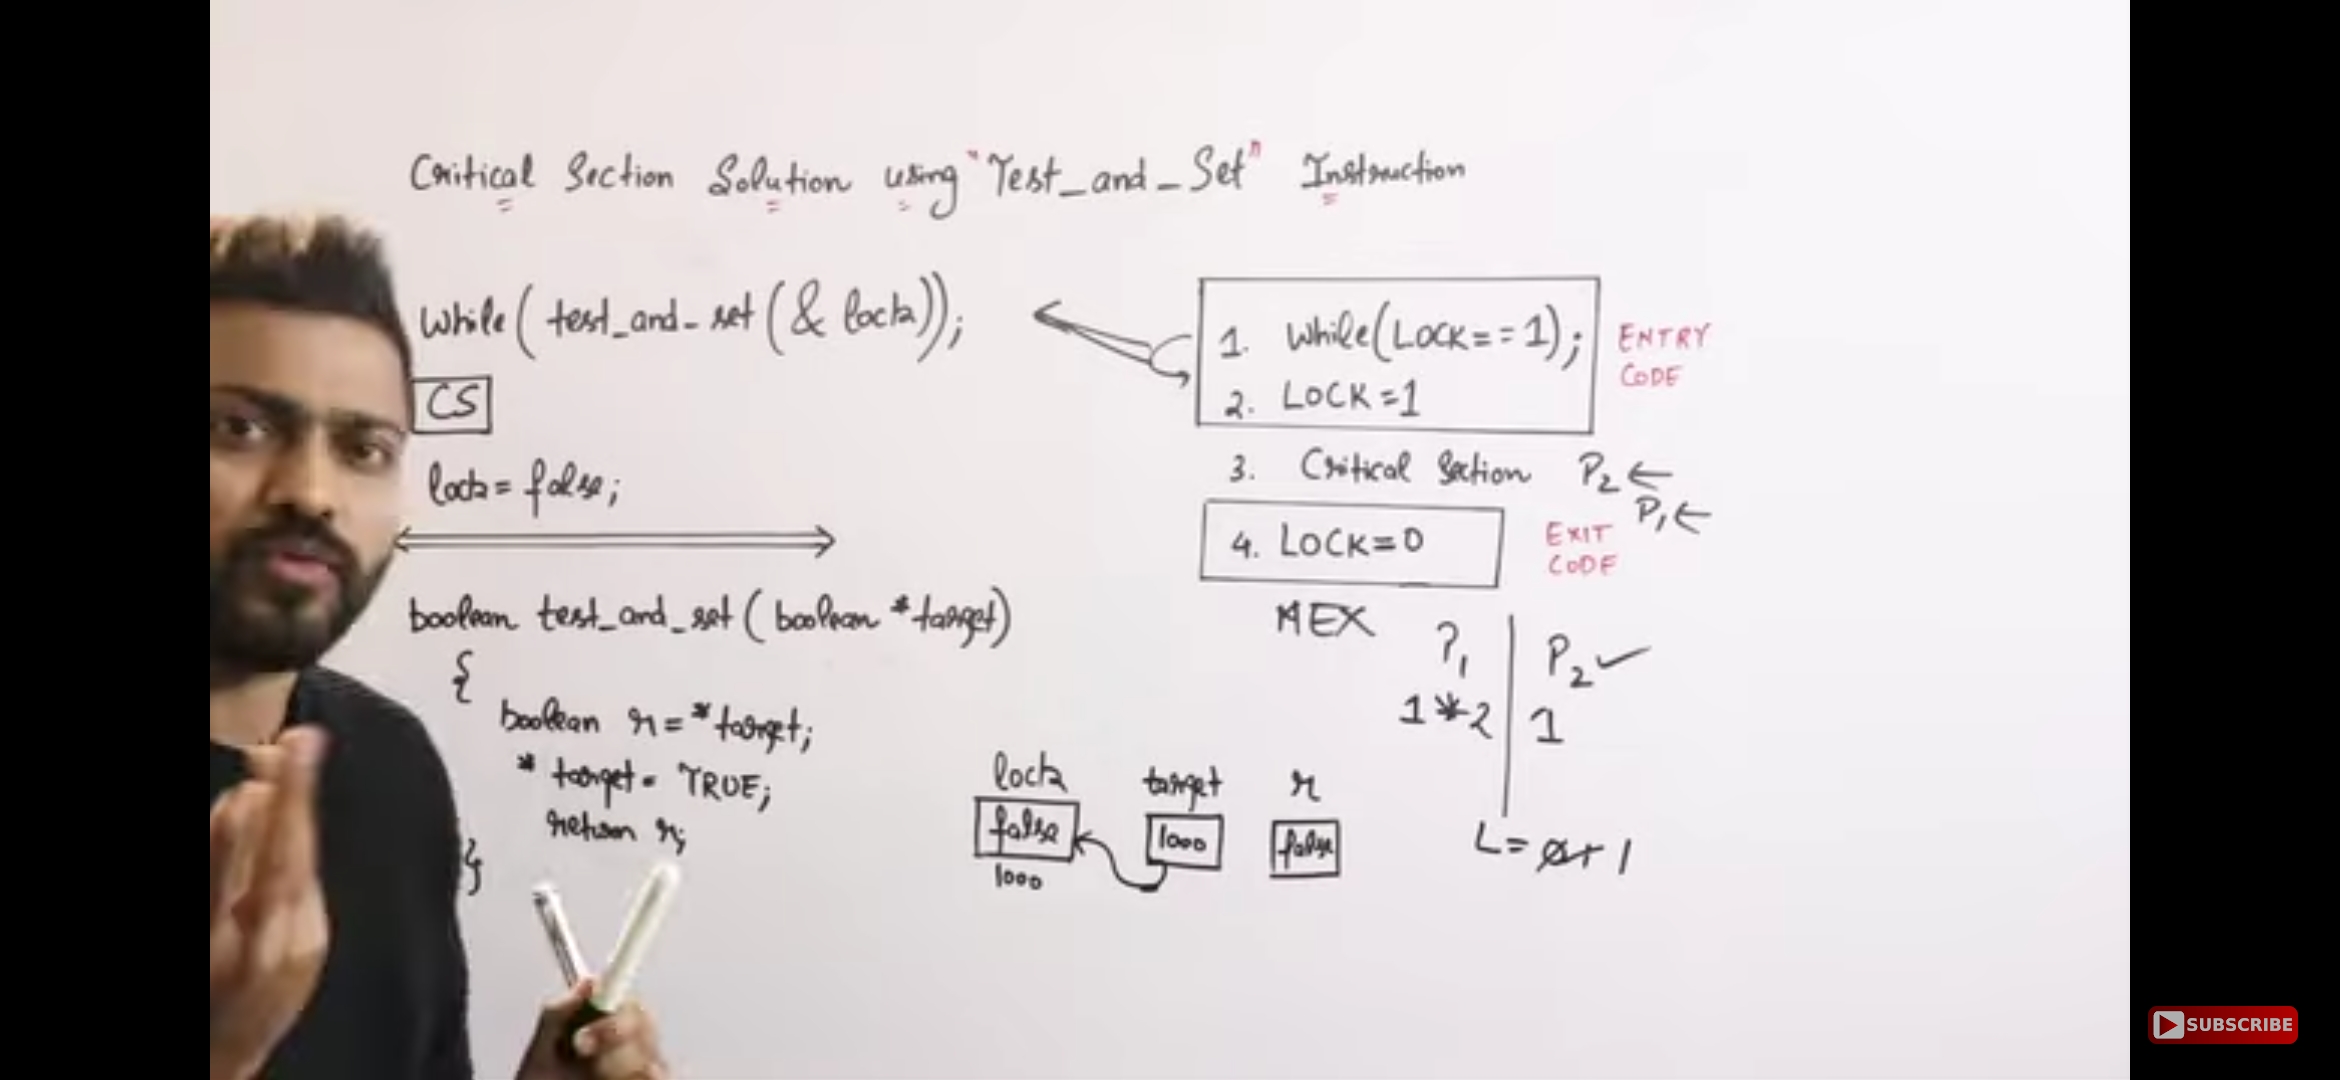 Critical Section Solution using "Test_and_Set" Instruction
While(test_and_set(&lock));
CS
lock=false;
boolean test_and_set(boolean *target)
{
boolean r=*target;
*target=TRUE;
return r;
}
1. While(LOCK==1);
2. LOCK=1
ENTRY
CODE
3. Critical Section P2 ←
P1 ←
4. LOCK=0
EXIT
CODE
MEX
P1 | P2 ✓
1*2 | 1
lock target r
false 1000 false
1000
L= 1
SUBSCRIBE